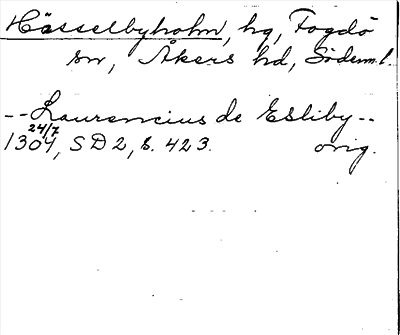 Hässelbyholm, hg, Fogdö
sn, Åkers hd, Söderm.l.
--Laurencius de Esliby--
24/7
1304, SD2, s. 423. orig.